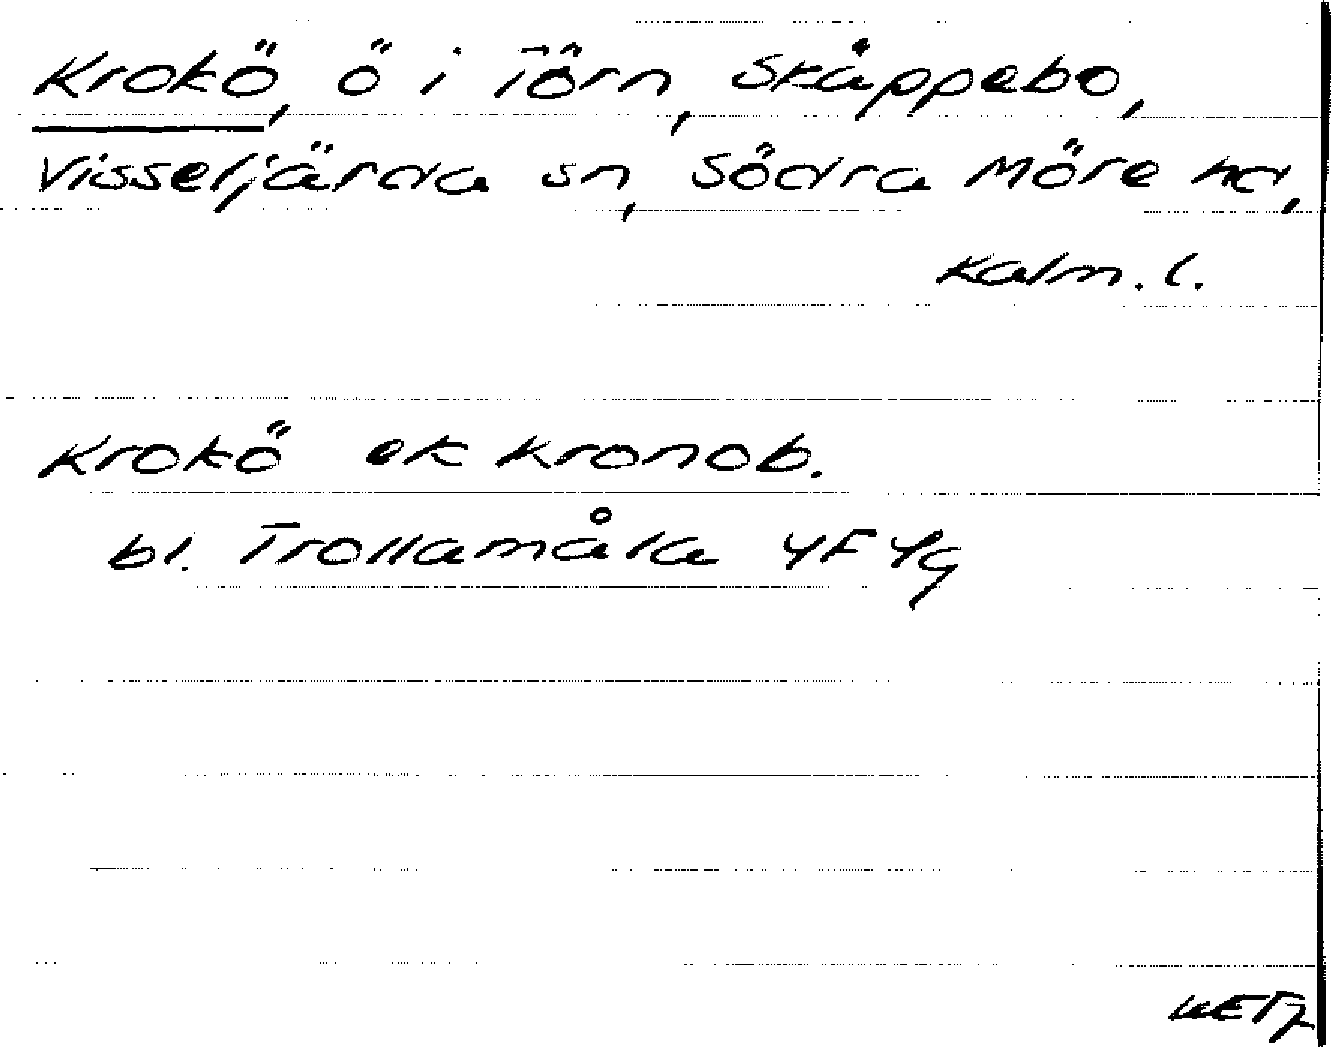 Krokö, ö i Törn, Skåppebo,
Vissefjärda sn, Södra Möre hd,
Kalm. l.
Krokö ek Kronob.
bl. Trollamåla 4F 4g